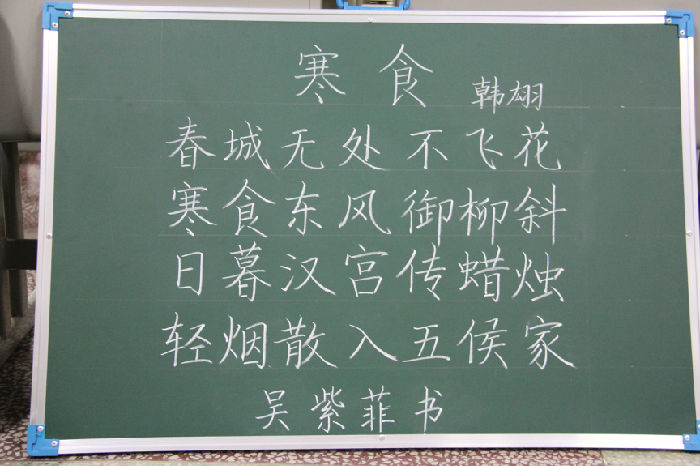 寒食 韩翃
春城无处不飞花
寒食东风御柳斜
日暮汉宫传蜡烛
轻烟散入五侯家
吴紫菲书